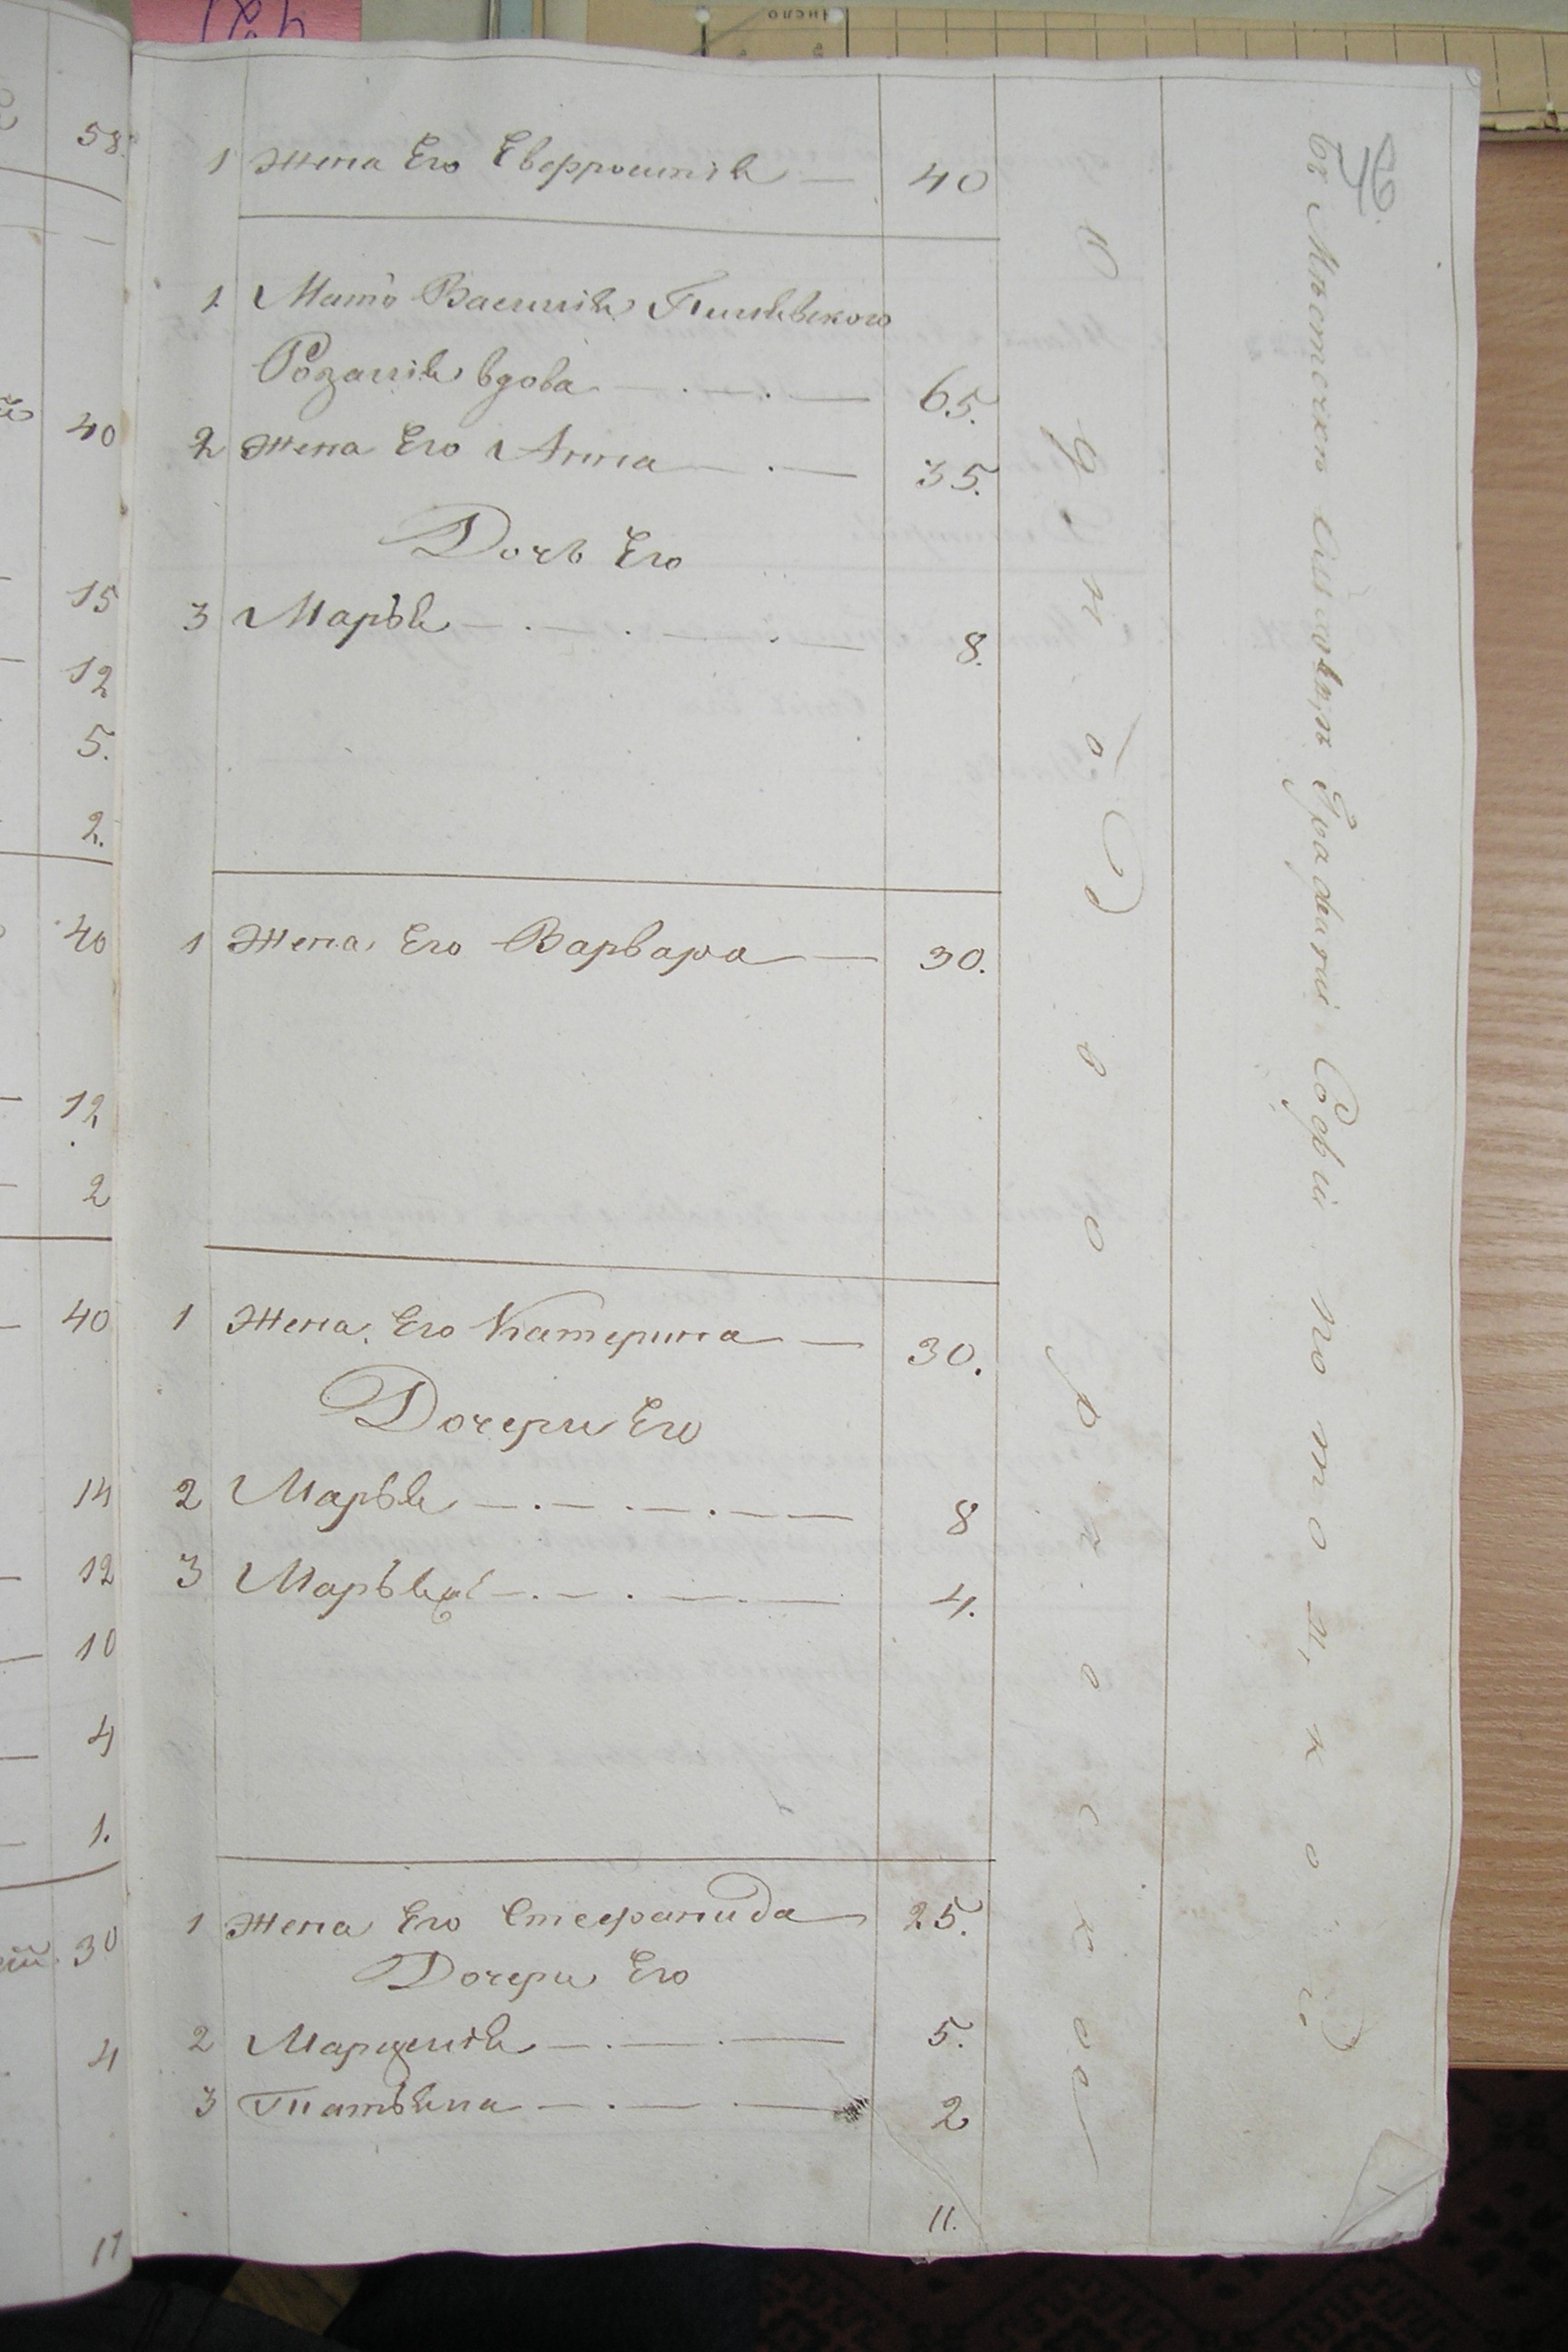 96.
58.
40
15
12
5.
2.
40
12
2
40
14
12
10
4
1.
30
4
17
1 Жена Его Евфросинія — 40
1 Мать Василія
Розалія вдова — 65.
2 Жена Его Анна — 35.
Дочь Его
3 Марья — 8.
1 Жена Его Варвара — 30.
1 Жена Его Катерина — 30.
Дочери Его
2 Марья — 8
3 — 4.
1 Жена Его Стефанида — 25.
Дочери Его
2 — 5.
3 Татьяна — 2
11.
Однодворческое
въ Мѣстечкѣ Софіи
число